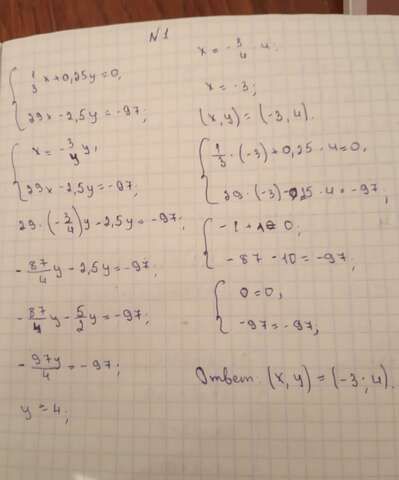 N1
{ 1/3 x + 0,25y = 0,
29x - 2,5y = -97;
{ x = -3/4 y,
29x - 2,5y = -97;
29 · (-3/4)y - 2,5y = -97;
-87/4 y - 2,5y = -97;
-87/4 y - 5/2 y = -97;
-97y/4 = -97;
y = 4;
x = -3/4 · 4;
x = -3;
(x, y) = (-3, 4).
{ 1/3 · (-3) + 0,25 · 4 = 0,
29 · (-3) - 2,5 · 4 = -97;
{ -1 + 1 = 0;
-87 - 10 = -97;
{ 0 = 0,
-97 = -97;
Ответ: (x, y) = (-3; 4).